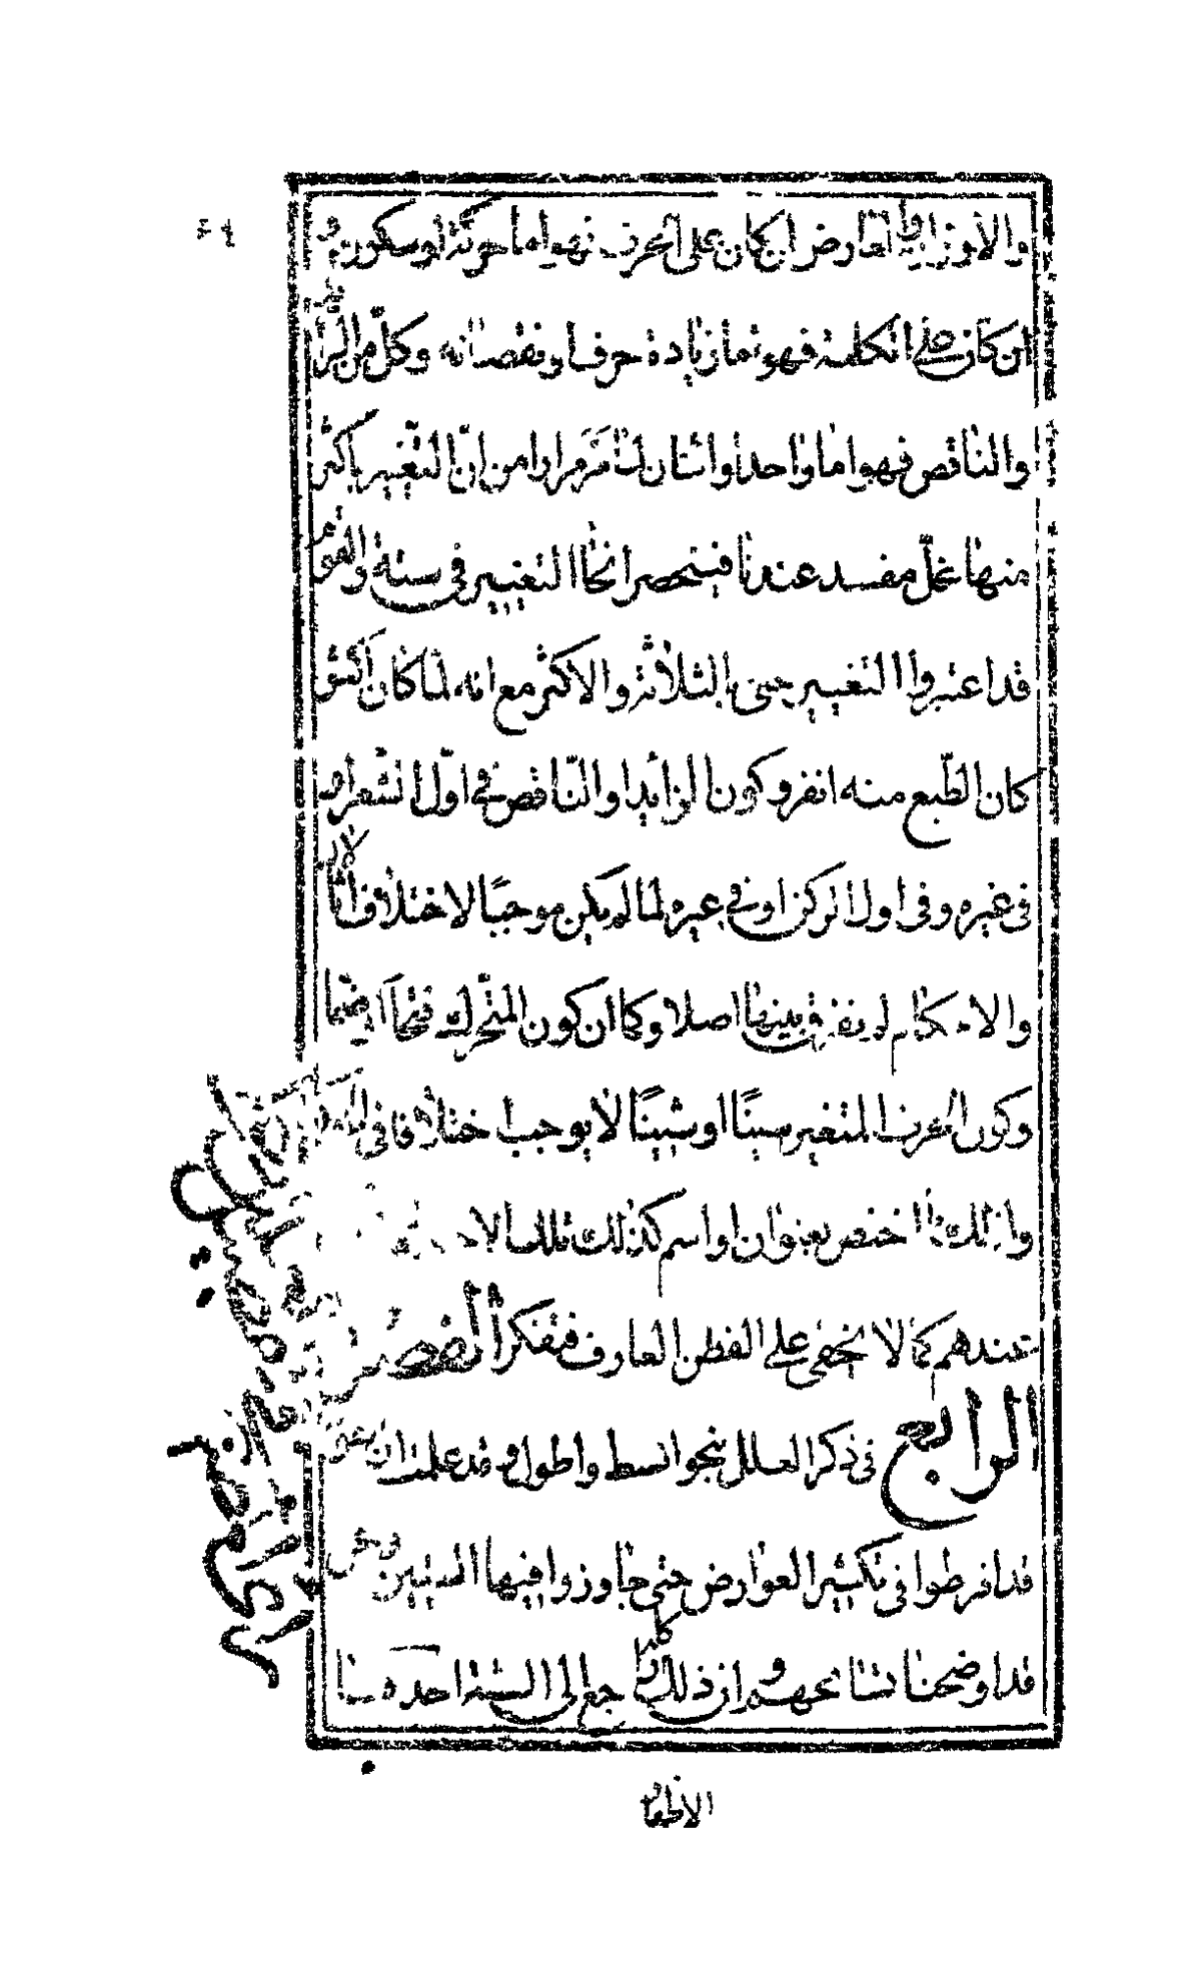 والاوزان والعارض ان كان على الحرف فهو اما حركة او سكون و
ان كان على الكلمة فهو اما زيادة حرف او نقصانه وكل من الزائد
والناقص فهو اما واحد او اثنان لما مر مرارا من ان التغيير باكثر
منها مخل مفسد عندنا فينحصر انحاء التغيير في ستة والقوم
قد اعتبروا التغيير حتى بالثلاثة والاكثر مع انه لما كان اكثر
كان الطبع منه انفر وكون الزائد او الناقص في اول الشعر او
في غيره وفي اول الركن او في غيره لما لم يكن موجبا لاختلاف الاثار
والاحكام لم يفرق بينهما اصلا وكما ان كون المتحرك فتحا او ضما
وكون الحرف المتغير سينا او شينا لا يوجب اختلافا في
ولذلك اختص بعنوان او اسم كذلك تلك
عندهم كما لا يخفى على الفطن العارف فتفكر الفصل
الرابع في ذكر العلل بنحو ابسط واطول وقد علمت ان
قد افرطوا في تكثير العوارض حتى جاوزوا فيها الستين ونحن
قد اوضحنا لك ان ذلك كله راجع الى الستة احدها